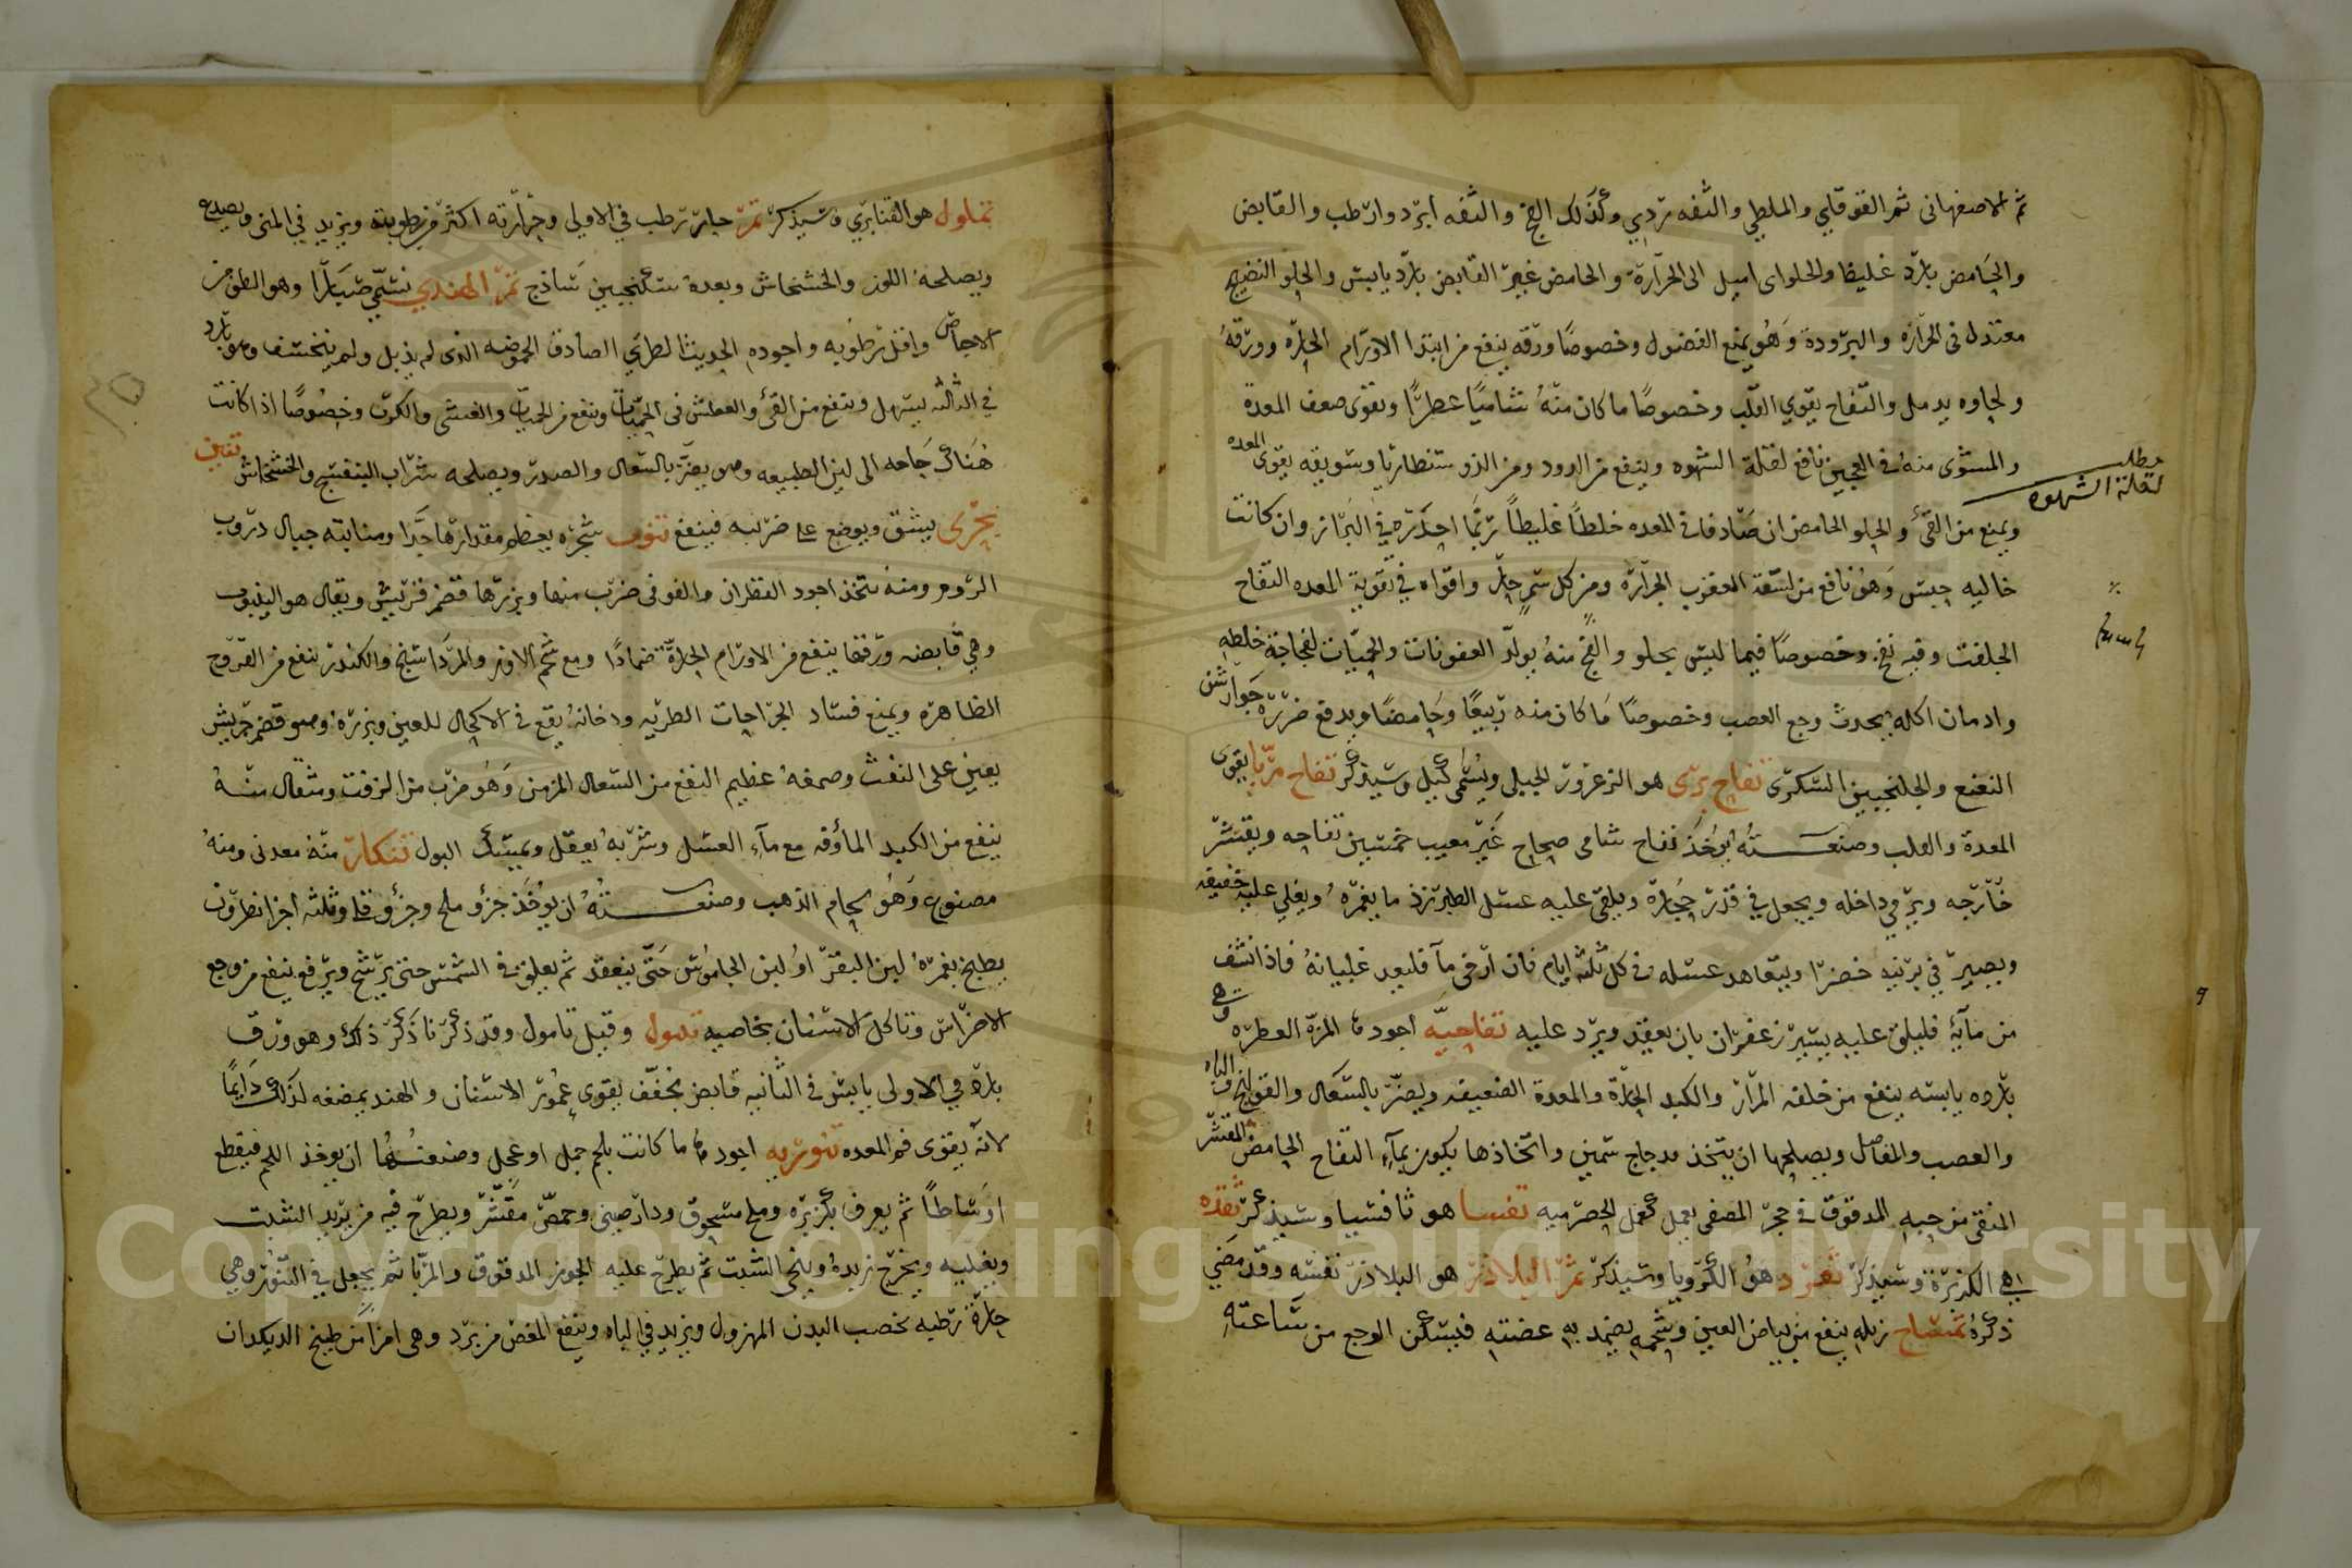 ثم الاصفهانى ثم القوقابى والملطى والتفه ردي وكذلك الفج والتفه ابرد وارطب والقابض
والحامض بارد غليظ والحلواى اميل الى الحرارة والحامض غير القابض بارد يابس والحلو النضيج
معتدل فى الحرارة والبرودة وهو يمنع الفضول وخصوصًا ورقه ينفع من ابتدا الاورام الحارّه وورقهُ
ولحاوه يدمل والتفاح يقوي القلب وخصوصًا ما كان منهُ شاميًا عطرًا ويقوى ضعف المعدة
والمشوى منهُ فى العجين نافع لقلة الشهوه وينفع من الدود ومن الذوسنطاريا وسويقه يقوى المعده
مطلب
لقلة الشهوه
ويمنع من القىٔ والحلو الحامض ان صادفا فى المعده خلطًا غليظاً ربّما احدره فى البراز وان كانت
خاليه حبس وهو نافع من لسعة العقرب الجرارة ومن كل سمٍ حارّ واقواه فى تقوية المعده التفاح
الجلفت وفيه نفخ وخصوصًا فيما ليس بحلو والفج منهُ يولّد العفونات والحميّات لفجاجة خلطه
وادمان اكله يحدث وجع العصب وخصوصًا ما كان منه ربيعًا وحامضًا ويدفع ضرره جوارشن
النعنع والجلنجبين السكرى تفاح برى هو الزعرور الجبلى ويُسمى كيل وسيذكر تفاح مربّا يقوى
المعدة والقلب وصنعتهُ يُؤخذ تفاح شامى صحاح غير معيب خمسين تفاحه ويقشر
خارجه ويرمي داخله ويجعل في قدر حجارة ويلقى عليه عسل الطبرزذ ما يغمرهُ ويغلي عليه خفيفه
ويصير في برنيه خضرا ويتعاهد عسله فى كل ثلثه ايام فان ارخى مآ فليعد غليانهُ فاذا نشف
من مآيهٔ فليلق عليه يسير زعفران بان يعقد ويرد عليه تفاحيّه اجودها المزّة العطره وهى
بارده يابسه ينفع من خلفه المرار والكبد الحارّة والمعدة الضعيفه ويضرّ بالسعال والقولنج الباه
والعصب والمفاصل ويصلحها ان يتخذ بدجاج سمين واتخاذها يكون بمآءِ التفاح الحامض المقشر
المنقى من حبه المدقوق فى حجر المصفى يعمل كعمل الحصرميه تفسيا هو ثافسيا وسيذكر تقده
هي الكزبرة وسيذكر تقرد هوُ الكرويا وسيذكر ثمر البلاذر هو البلاذر نفسه وقد مضي
ذكرهُ تمساح زبله ينفع من بياض العين وشحمه يضمد به عضته فيسكن الوجع من ساعتهِ
تملول هو القنابرى وسيذكر تمر حار رطب فى الاولى وحرارته اكثر من رطوبته ويزيد في المنى ويصدع
ويصلحهُ اللوز والخشخاش وبعدهُ سكنجبين ساذج تمر الهندي يسمّى صبارًا وهو الطف من
الاجاص واقل رطوبه واجوده الحديث الطري الصادق الحموضه الذى لم يذبل ولم يتخشف وهو بارد
في الثالثه يسهل وينفع من القىٔ والعطش فى الحميات وينفع من الحميات والغشى والكرب وخصوصًا اذا كانت
هناك حاجه الى لين الطبيعه وهو يضر بالسعال والصدر ويصلحه شراب البنفسج والخشخاش تنين
بحرى يشق ويوضع على ضربته فينفع تنوب شجره يعظم مقدارها جدًا ومنابته جبال دروب
الروم ومنهُ يتخذ اجود القطران والفوفى ضرب منها وبزرها قضم قريش ويقال هو الينبوت
وهي قابضه ورقها ينفع من الاورام الحارّة ضمادًا ومع شحم الاوز والمرداسنج والكندر ينفع من القروح
الظاهره ويمنع فساد الجراحات الطريه ودخانهُ يقع فى الاكحال للعين وبزرهُ وهو قضم قريش
يعين على النفث وصمغهُ عظيم النفع من السعال المزمن وَهُو ضرب من الزفت ومثقال منهُ
ينفع من الكبد المأوفه مع مآءِ العسل وشربهُ يعقل ويمسك البول تنكار منه معدنى ومنهُ
مصنوع وَهُو لحام الذهب وصنعتهُ ان يُوخَذ جزؤ ملح وجزؤ قلى وثلثه اجزا نطرون
يطبخ بغمرهُ لبن البقر اوُ لبن الجاموس حَتّى ينعقد ثم يعلق فى الشمس حتى يرشح ويرفع ينفع من وجع
الاضراس وتاكل الاسنان بخاصيه تنبول وقيل تامول وقد ذكرنا ذكر ذلك وهو ورق
بارد في الاولى يابس فى الثانيه قابض مجفف يقوى عمُور الاسنان والهند يمضغه لذلك دَايمًا
لانّه يقوى فم المعده تنوريه اجودها ما كانت بلحم جمل او عجل وصنعتُها ان يوخذ اللحم فيقطع
اوسَاطاً ثم يعرق بكزبره وملح مسحوق ودارصينى وحمصّ مقشّر ويطرح فيه من يريد الشبت
ويغليه ويخرج زبدهُ وينحى الشبت ثم يطرح عليه الجوز المدقوق والمربّا ثم يجعل في التنور وهي
حارّة رطبه تخصب البدن المهزول ويزيد في الباه وينفع المغص من برد وهى امرا من طبيخ الديكدان